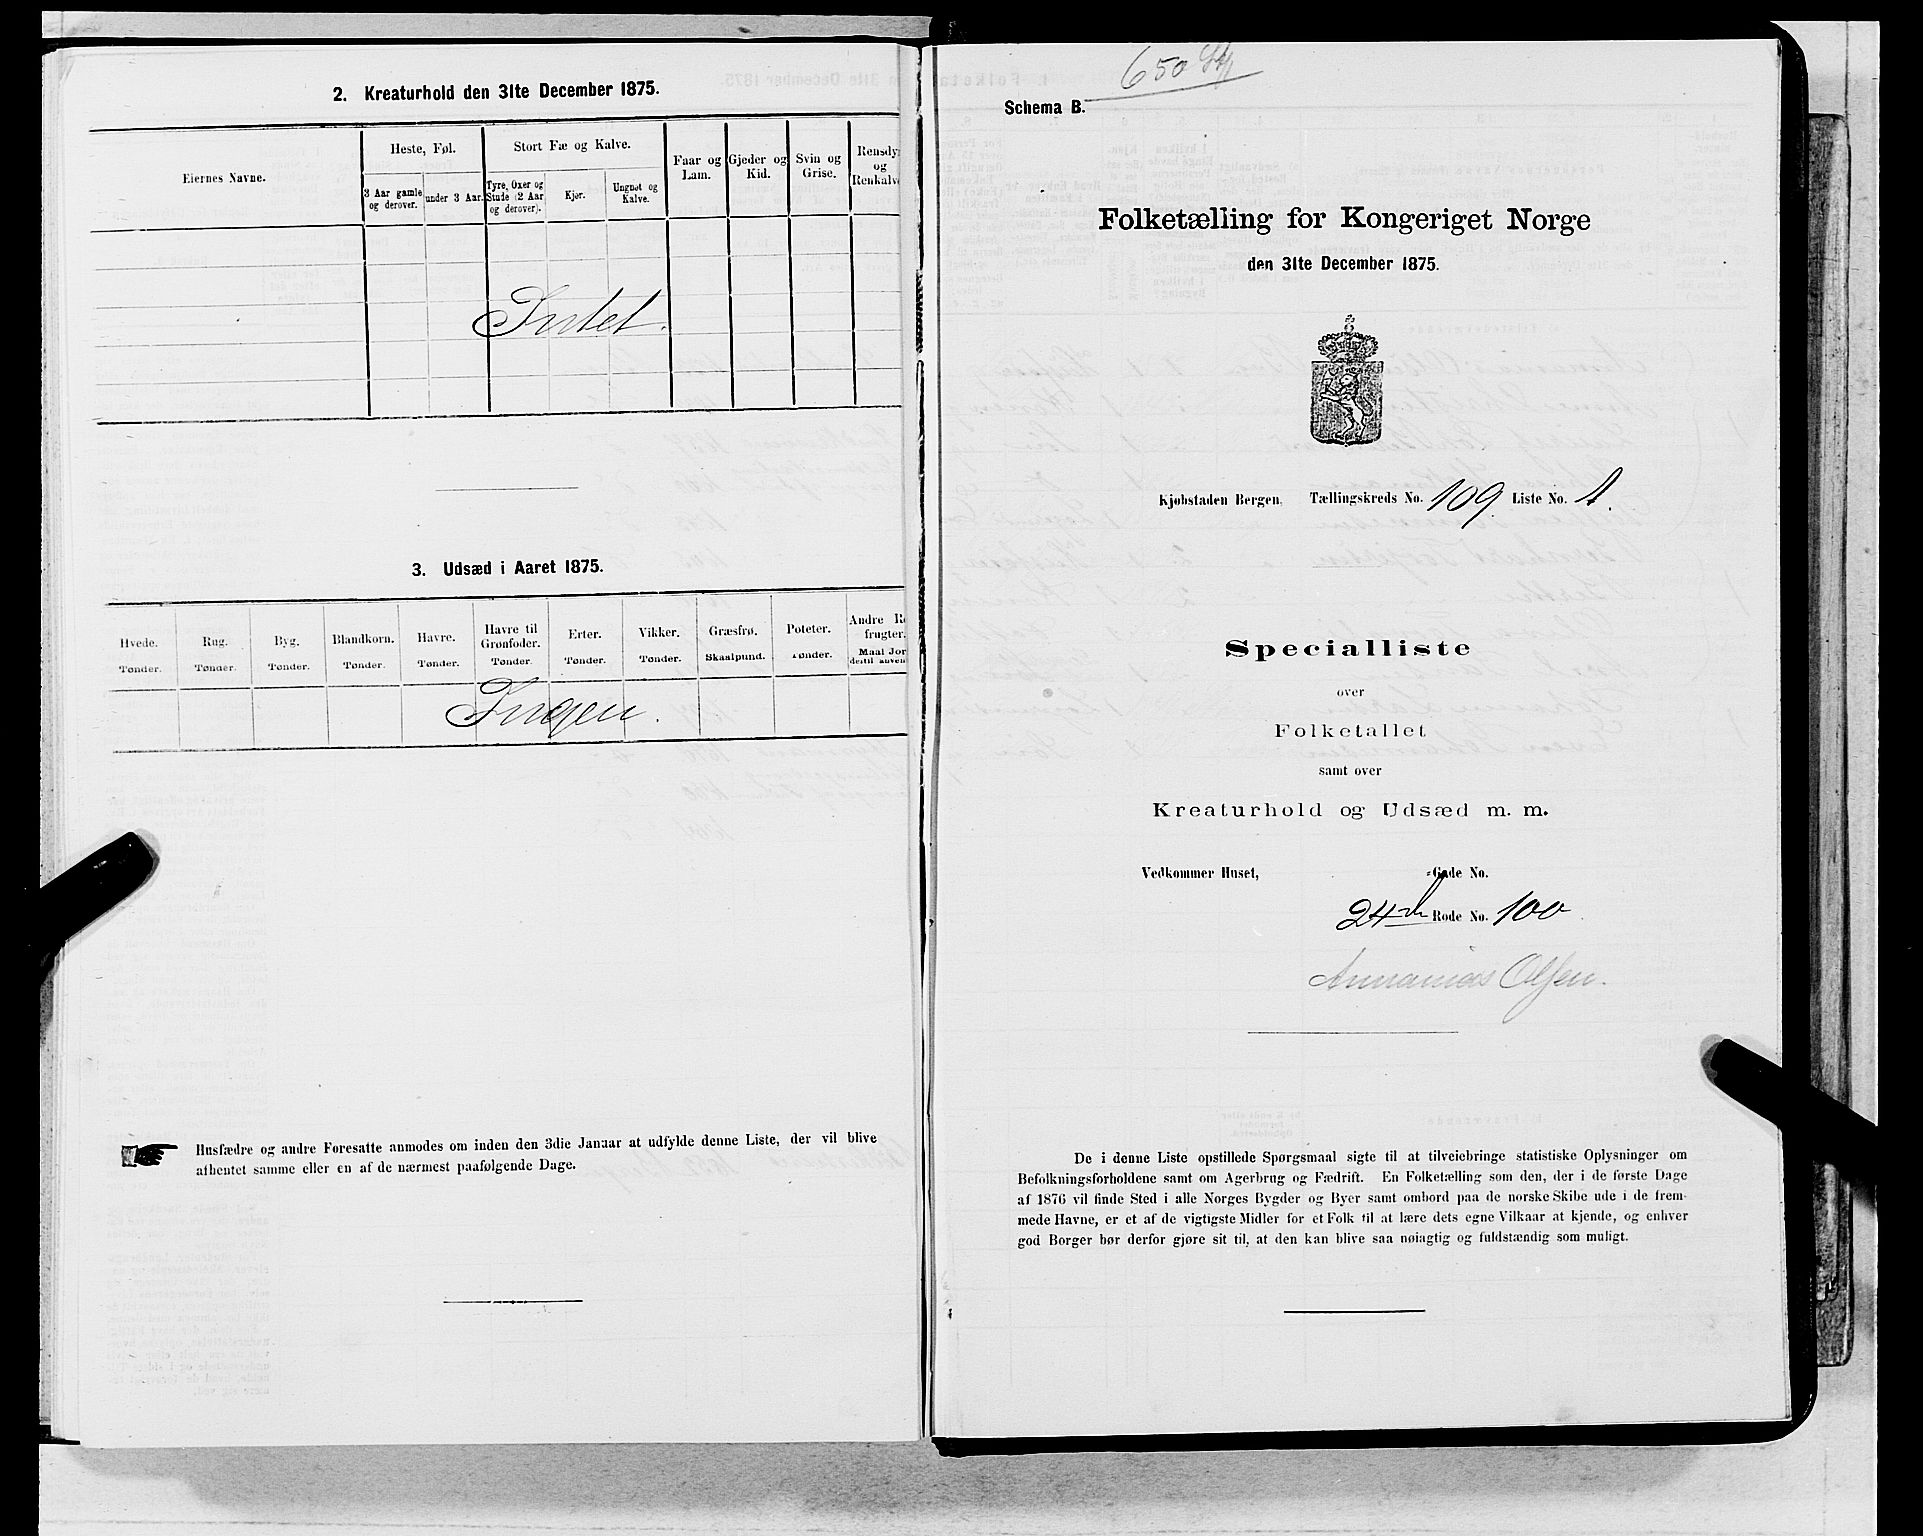 2. Kreaturhold den 31te December 1875.
Eiernes Navne.
Heste, Føl.
3 Aar gamle og derover.
under 3 Aar.
Stort Fæ og Kalve.
Tyre, Oxer og Stude (2 Aar og derover).
Kjør.
Ungnøt og Kalve.
Faar og Lam.
Gjeder og Kid.
Svin og Grise.
Rensdyr og Renkalve
Intet.
3. Udsæd i Aaret 1875.
Hvede. Tønder.
Rug. Tønder.
Byg. Tønder.
Blandkorn. Tønder.
Havre. Tønder.
Havre til Grønfoder. Tønder.
Erter. Tønder.
Vikker. Tønder.
Græsfrø. Skaalpund.
Poteter. Tønder.
Andre Ro
frugter.
Maal Jor
destil anven
Ingen.
Husfædre og andre Foresatte anmodes om inden den 3die Januar at udfylde denne Liste, der vil blive
afhentet samme eller en af de nærmest paafølgende Dage.
650
Schema B.
Folketælling for Kongeriget Norge
den 31te December 1875.
Kjøbstaden Bergen, Tællingskreds No. 109. Liste No. 1.
Specialliste
over
Folketallet
samt over
Kreaturhold og Udsæd m. m.
Vedkommer Huset, -Gade No.
24de Rode No. 100
Annanias Olsen.
De i denne Liste opstillede Spørgsmaal sigte til at tilveiebringe statistiske Oplysninger om
Befolkningsforholdene samt om Agerbrug og Fædrift. En Folketælling som den, der i de første Dage
af 1876 vil finde Sted i alle Norges Bygder og Byer samt ombord paa de norske Skibe ude i de frem-
mede Havne, er et af de vigtigste Midler for et Folk til at lære dets egne Vilkaar at kjende, og enhver
god Borger bør derfor gjøre sit til, at den kan blive saa nøiagtig og fuldstændig som muligt.